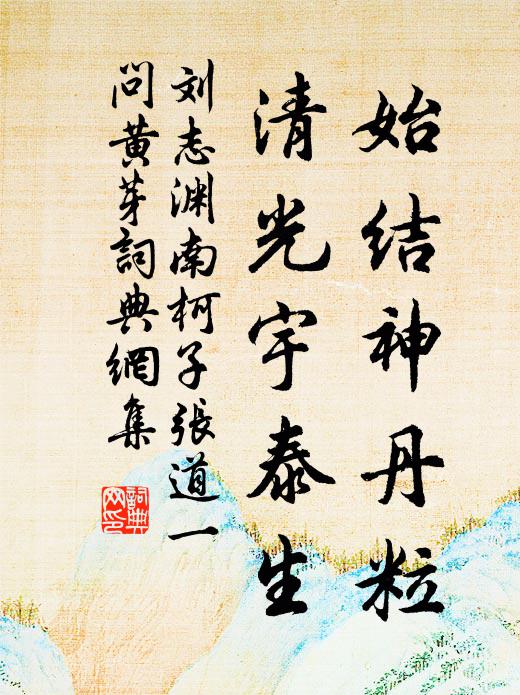 始结神丹粒
清光宇泰生
刘志渊南柯子張道一
问黄芽詞典網集
詞典
网印